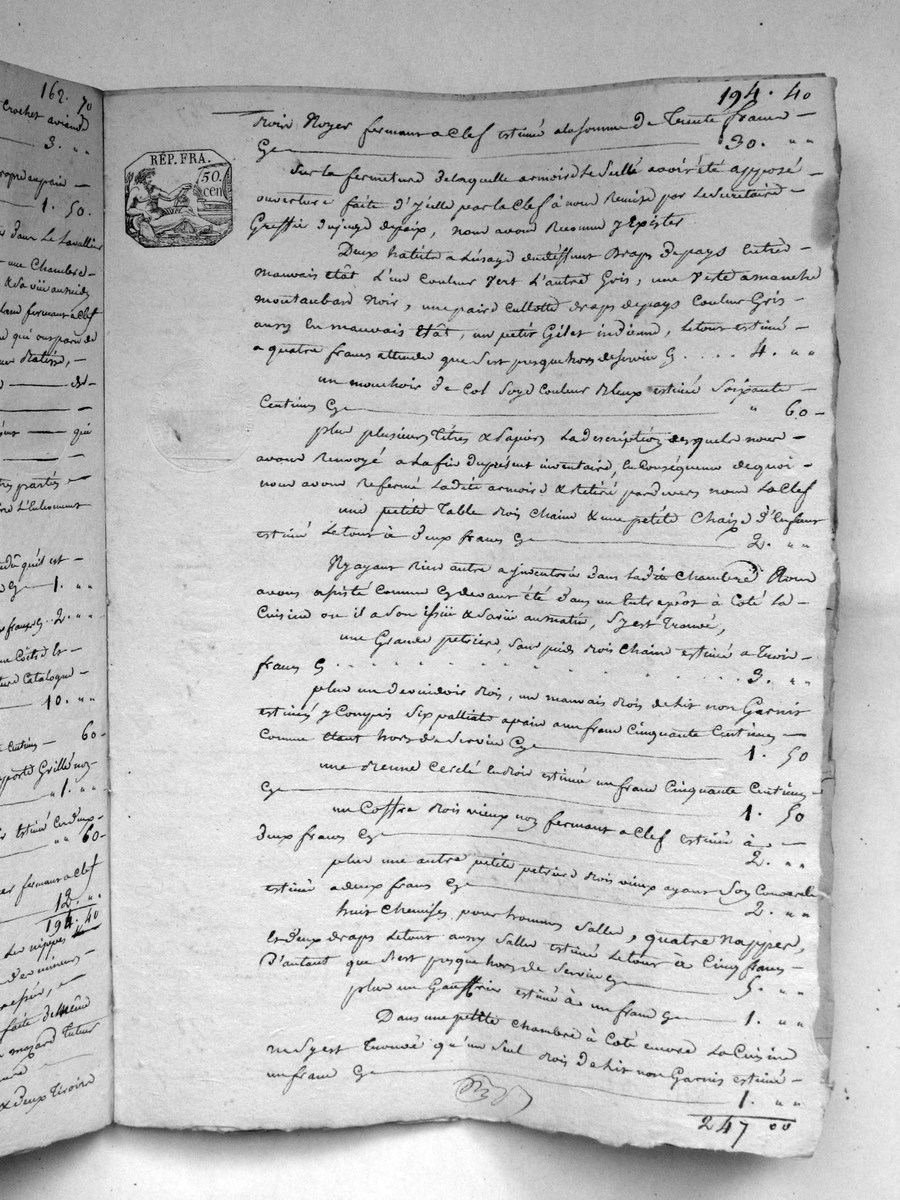 162. 70
crochet
3. " "
1. 50.
dans Le
une Chambre
fermant a Clef
de
qui
1. " "
2. " "
Catalogue
10. " "
Centimes 60
Grillé
" 1. " "
estimé
" " 60
fermant a Clef
12. " "
194. 40
Les nippes
de mineurs
faite de Même
mozard Tuteur
& deux Tiroirs
194. 40
Bois Noyer fermant a Clef estimé a la somme de Trente francs
Cy 30. " "
RÉP. FRA.
50.
cen
Sur la fermeture de laquelle armoire Le Scellé avoir été apposé
ouverture faite d'Icelle par la Clef à nous Remise par Le Secretaire
Greffier du juge de paix, nous avons Reconnu y Exister
Deux habits a L'usage du deffunt Draps de pays Entre
mauvais état L'un Couleur Vert L'autre Gris, une Veste a manche
montauban Noir, une paire Cullotte draps de pays Couleur Gris
aussy En mauvais Etât, un petit Gilet indienne, Le tout estimé
a quatre francs attendu que S'est presque hors de servir Cy .... 4. " "
un mouchoir de Col Soye Couleur Bleux estimé Soixante
Centimes Cy " 60
plus plusieurs Titres & Papiers La description desquels nous
avons Renvoyé a La fin du présent inventaire, En Conséquence de quoi
nous avons Refermé Ladite armoire & Retiré par devers nous La Clef
une petite Table Bois Chaine & une petite Chaise d'Enfant
estimé Le tout à deux francs Cy 2. " "
N'y ayant Rien autre a jnventorié dans Ladite Chambre Nous
avons assisté Comme Cy devant été dans un Entrepôt à Coté La
Cuisine ou il a Son issüe & Sa vüe au matin, S'y est Trouvé,
une Grande petriere, Sans pieds Bois Chaine estimé a Trois
francs Cy .......... 3. " "
plus un devuidoir Bois, un mauvais Bois de Lit non Garnis
estimés y Compris Six paillats a pain a un franc Cinquante Centimes
Comme Etant hors de Servir Cy 1. 50
une Benne Cerclé en Bois estimé un franc Cinquante Centimes
Cy 1. 50
un Coffre Bois vieux non fermant a Clef estimé à
deux francs Cy 2. " "
plus une autre petite petriere Bois vieux ayant Son Couvercle
estimé a deux francs Cy 2. " "
huit Chemises, pour hommes Salles, quatre Nappes,
Et deux draps Le tout aussy Salles estimé Le tout à Cinq francs
D'autant que S'est presque hors de Servir Cy 5. " "
plus un Gauffrier estimé à un franc Cy 1. " "
Dans une petite chambre à Coté encore La Cuisine
ne S'y est Trouvé qu'un Seul Bois de Lit non Garnis estimé
un franc Cy 1. " "
247 00